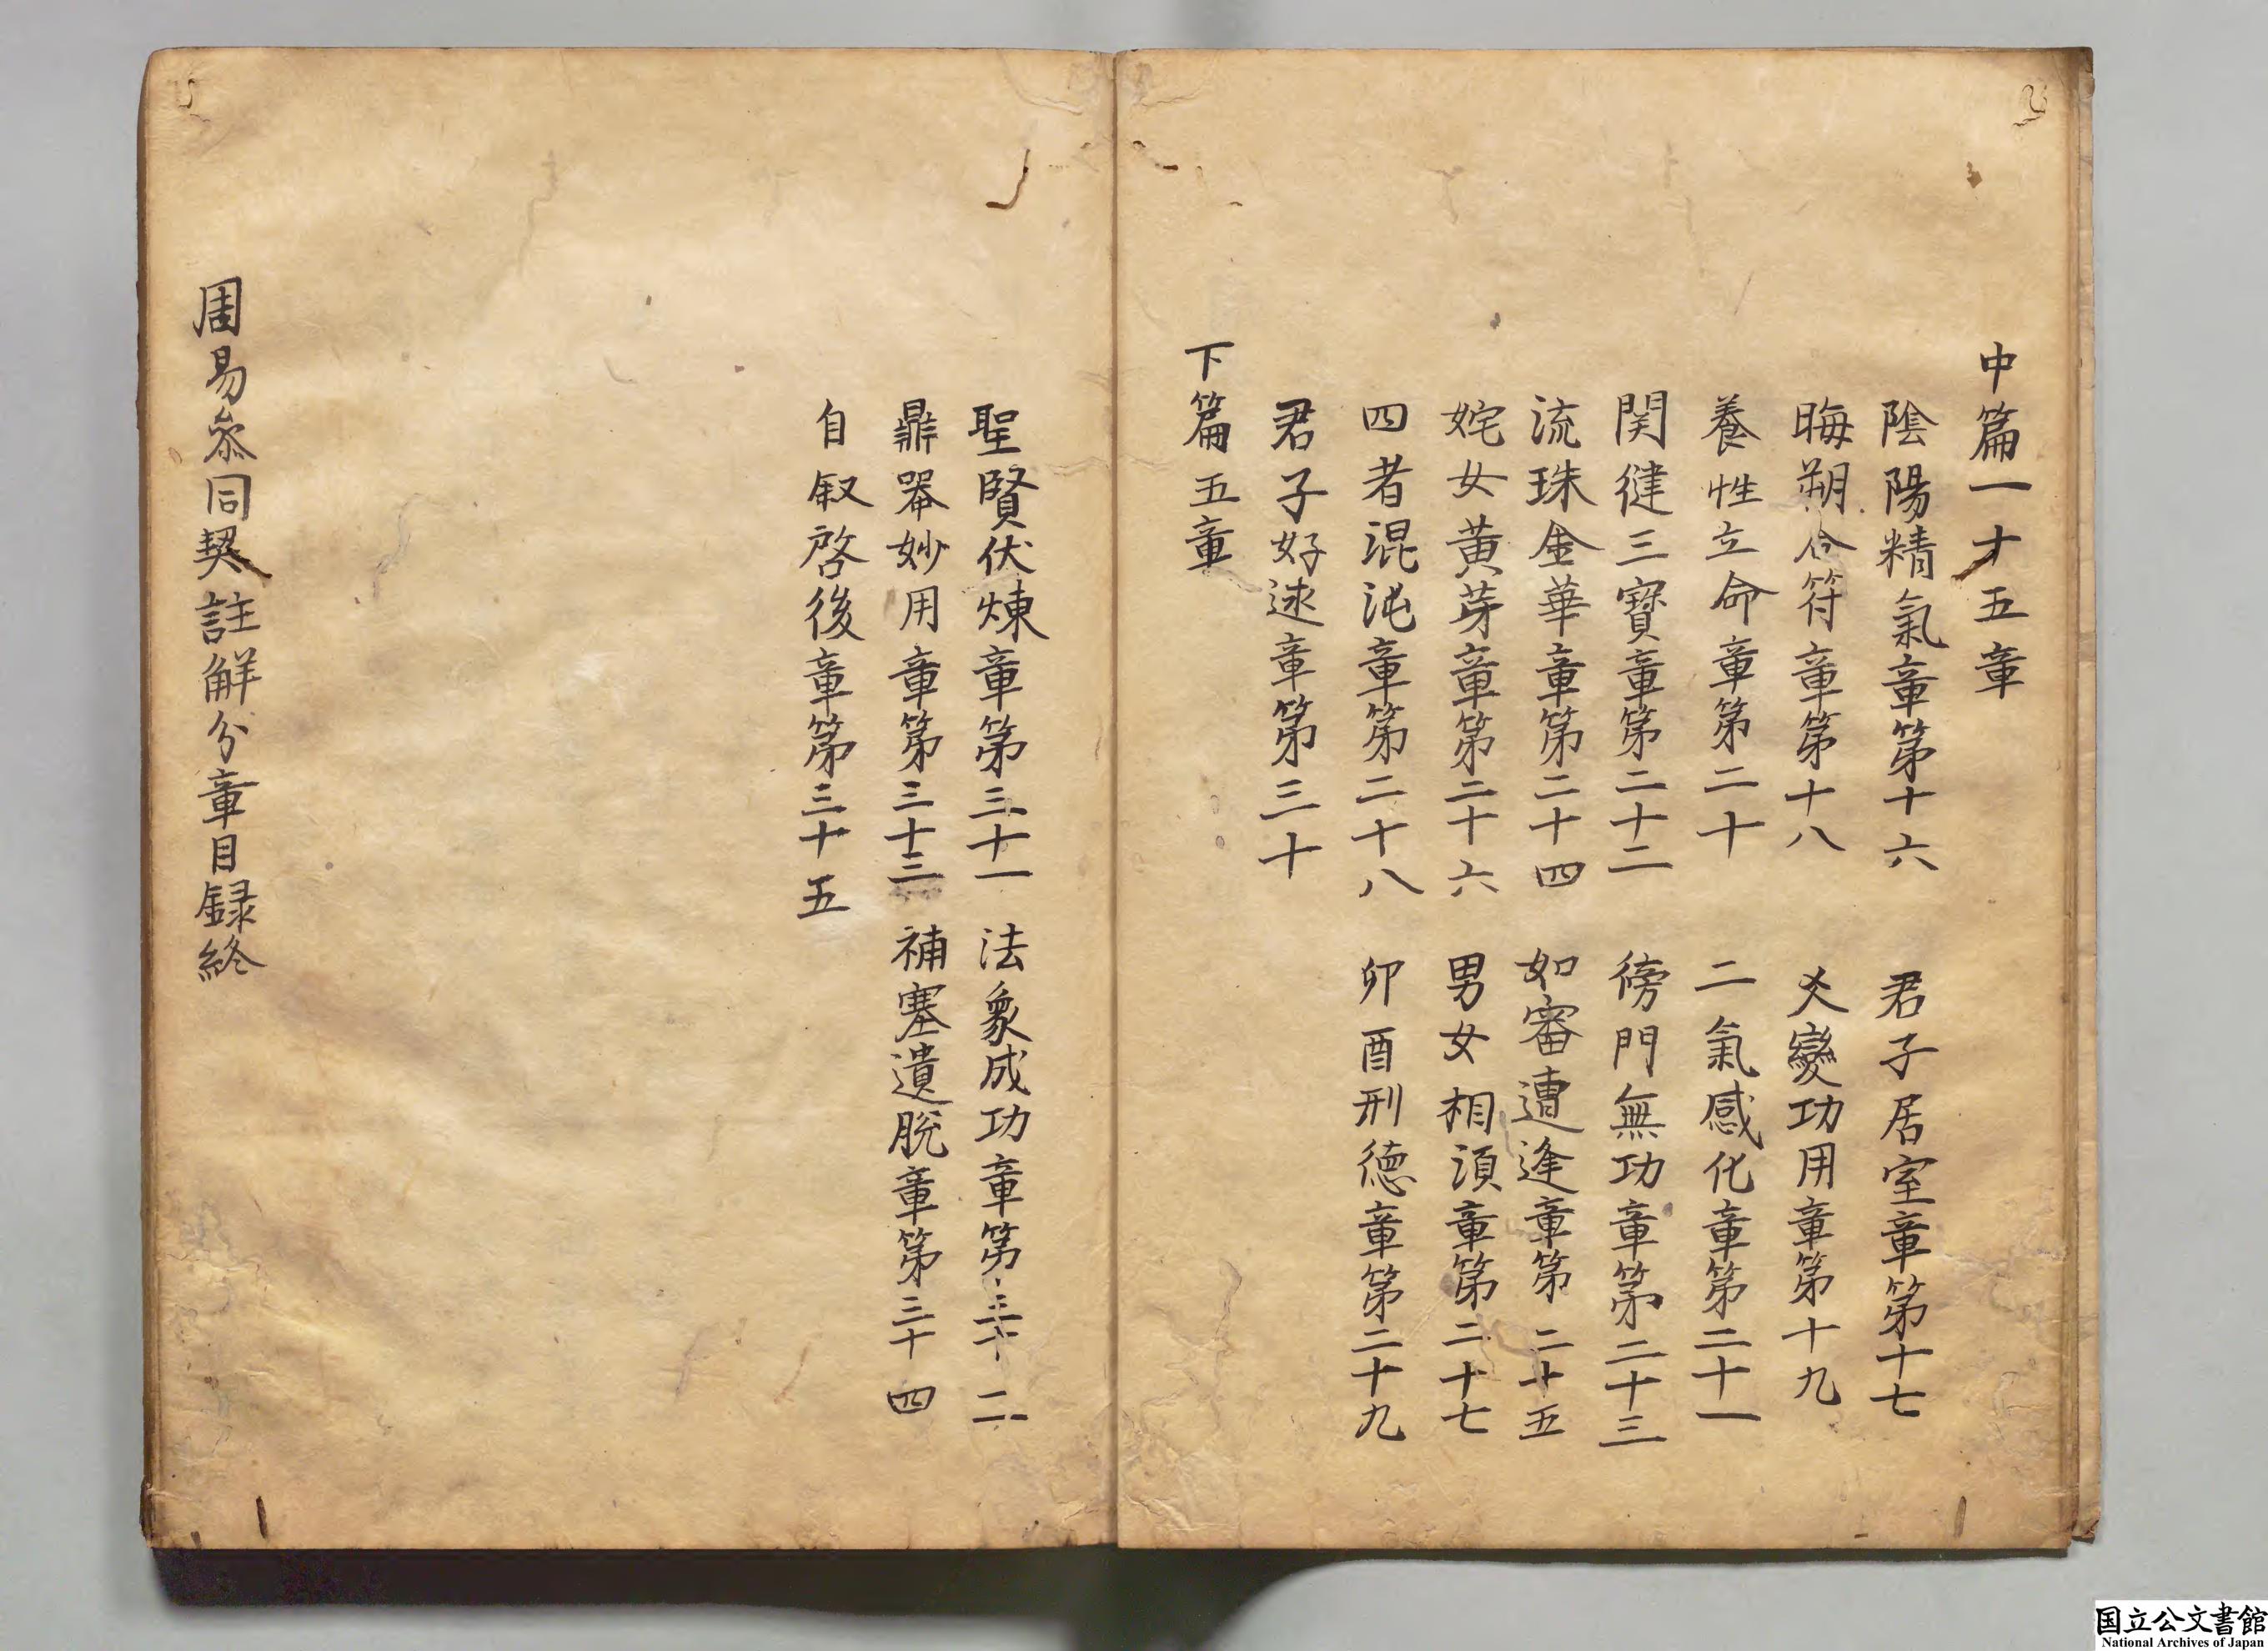 中篇一十五章
陰陽精氣章第十六　君子居室章第十七
晦朔合符章第十八　爻變功用章第十九
養性立命章第二十　二氣感化章第二十一
関鍵三寶章第二十二　傍門無功章第二十三
流珠金華章第二十四　如審遭逢章第二十五
姹女黃芽章第二十六　男女相湏章第二十七
四者混沌章第二十八　卯酉刑德章第二十九
君子好逑章第三十
下篇五章
聖賢伏煉章第三十一　法象成功章第三十二
鼎器妙用章第三十三　補塞遺脫章第三十四
自叙啓後章第三十五
周易參同契註解分章目録終
国立公文書館
National Archives of Japan